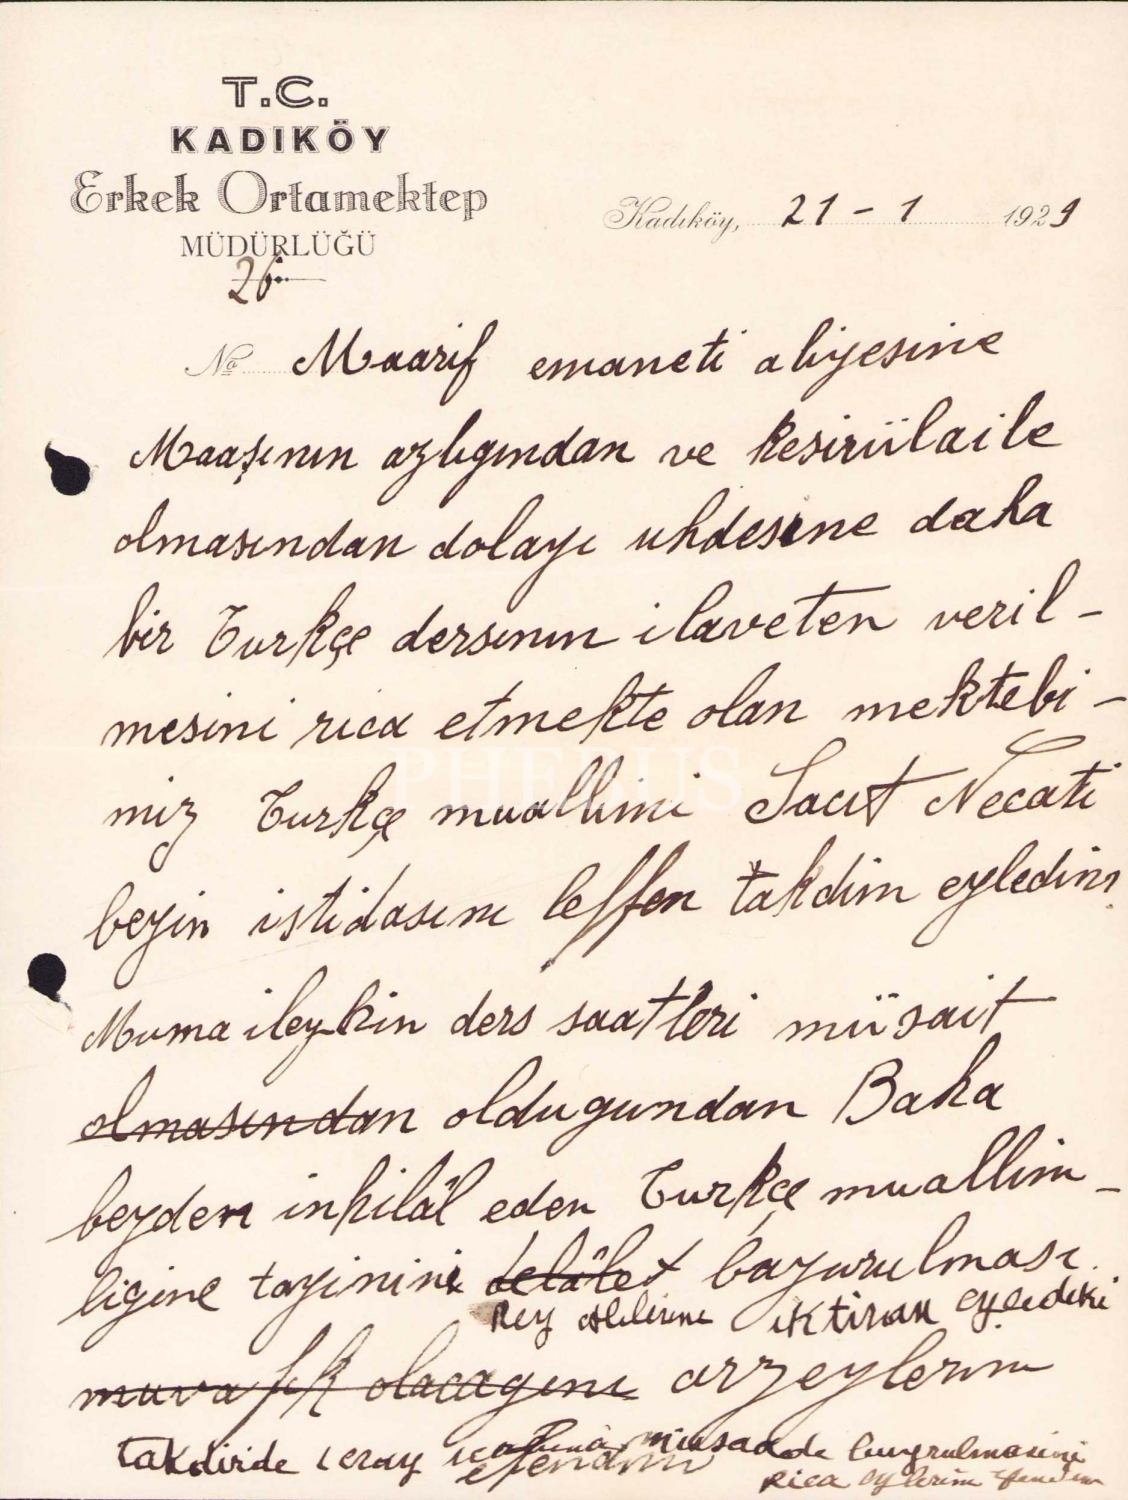 T.C.
KADIKÖY
Erkek Ortamektep
MÜDÜRLÜĞÜ
26
Kadıköy, 21 - 1 1929
No Maarif emaneti aliyesine
Maaşının azlıgından ve kesiriilaile
olmasından dolayı uhdesine daha
bir Turkçe dersının ilaveten veril-
mesini rica etmekte olan mektebi-
miz Turkçe muallimi Sacıt Necati
beyin istidasını leffen takdim eyledim
Muma ileyhin ders saatleri müsait
olmasından oldugundan Baha
beyden inhilâl eden Turkçe muallim-
ligine tayinini delâlet bayurulması
Rey iktiran eylediki
muvafık olacagını arzeylerim
takdirde icray müsaade buyrulmasini
efendim
rica eylerim efendim
PHEBUS